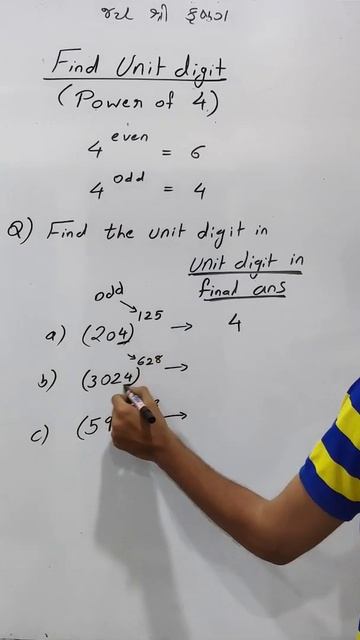 જય શ્રી કૃષ્ણ
Find Unit digit
(Power of 4)
4^even = 6
4^odd = 4
Q) Find the unit digit in
Unit digit in
final ans
odd
a) (204)^125 → 4
b) (3024)^628 →
c) (59 →